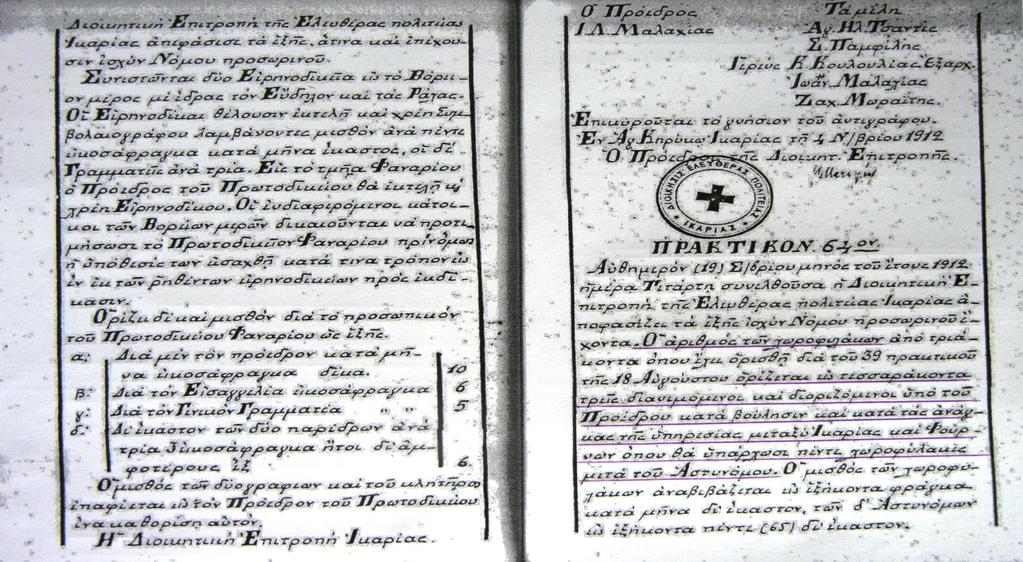 Διοικητική Ἐπιτροπή τῆς Ἐλευθέρας πολιτείας
Ἰκαρίας ἀπεφάσισε τά ἑξῆς, ἅτινα καί ἐπέχου-
σιν ἰσχύν Νόμου προσωρινοῦ.
Συνιστῶνται δύο Εἰρηνοδικεῖα εἰς τό Βόρει-
ον μέρος μέ ἕδρας τόν Εὔδηλον καί τάς Ράχας.
Οἱ Εἰρηνοδίκαι θέλουσιν ἐκτελῆ καί χρέη Συμ-
βολαιογράφου λαμβάνοντες μισθόν ἀνά πέντε
εἰκοσάφραγκα κατά μῆνα ἕκαστος, οἱ δέ
Γραμματεῖς ἀνά τρία. Εἰς τό τμῆμα Φαναρίου
ὁ Πρόεδρος τοῦ Πρωτοδικείου θά ἐκτελῆ κ'
χρέη Εἰρηνοδίκου. Οἱ ἐνδιαφερόμενοι κάτοι-
κοι τῶν Βορείων μερῶν δικαιοῦνται νά προτι-
μήσωσι τό Πρωτοδικεῖον Φαναρίου πρίν ὅμως
ἡ ὑπόθεσίς των εἰσαχθῆ κατά τινα τρόπον εἰς
ἕν ἐκ τῶν ρηθέντων εἰρηνοδικείων πρός ἐκδί-
κασιν.
Ὁρίζει δέ καί μισθόν διά τό προσωπικόν
τοῦ Πρωτοδικείου Φαναρίου ὡς ἑξῆς.
α: Διά μέν τόν πρόεδρον κατά μῆ-
να εἰκοσάφραγκα δέκα. 10
β: Διά τόν Εἰσαγγελέα εἰκοσάφραγκα 6
γ: Διά τόν Γενικόν Γραμματέα " " 5
δ: Δι' ἕκαστον τῶν δύο παρέδρων ἀνά
τρία 3 εἰκοσάφραγκα ἤτοι δι' ἀμ-
φοτέρους ἕξ 6.
Ὁ μισθός τῶν δύο γραφέων καί τοῦ κλητῆρος
ἐπαφίεται εἰς τόν Πρόεδρον τοῦ Πρωτοδικείου
ἵνα καθορίση αὐτόν.
Ἡ Διοικητική Ἐπιτροπή Ἰκαρίας.
Ὁ Πρόεδρος Τα μέλη
Ι.Λ. Μαλαχίας Ἁγ. Ηλ. Τσαντές
Σ. Παμφίλης
Ἱερεύς Κ. Κουλουλίας Ἔξαρχ.
Ἰωάν. Μαλαχίας
Ζαχ. Μωραΐτης.
Ἐπικυροῦται τό γνήσιον τοῦ ἀντιγράφου.
Ἐν Ἁγ. Κηρύκῳ Ἰκαρίας τῆ 4 Ν/βρίου 1912
Ὁ Πρόεδρος τῆς Διοικητ. Ἐπιτροπῆς.
ΔΙΟΙΚΗΣΙΣ ΕΛΕΥΘΕΡΑΣ ΠΟΛΙΤΕΙΑΣ
ΙΚΑΡΙΑΣ
ΠΡΑΚΤΙΚΟΝ 64ον
Αὐθημερόν (19) Σ/βρίου μηνός τοῦ ἔτους 1912
ἡμέρα Τετάρτη συνελθοῦσα ἡ Διοικητική Ἐ-
πιτροπή τῆς Ἐλευθέρας πολιτείας Ἰκαρίας ἀ-
ποφασίζει τά ἑξῆς ἰσχύν Νόμου προσωρινοῦ ἔ-
χοντα. Ὁ ἀριθμός τῶν χωροφυλάκων ἀπό τριά-
κοντα ὅπου ἔχει ὁρισθῆ διά τοῦ 39 πρακτικοῦ
τῆς 18 Αὐγούστου ὁρίζεται εἰς τεσσαράκοντα
τρεῖς διανεμόμενοι καί διοριζόμενοι ὑπό τοῦ
Προέδρου κατά βούλησιν καί κατά τάς ἀνάγ-
κας τῆς ὑπηρεσίας μεταξύ Ἰκαρίας καί Φούρ-
νων ὅπου θά ὑπάρχωσι πέντε χωροφύλακες
μετά τοῦ Ἀστυνόμου. Ὁ μισθός τῶν χωροφυ-
λάκων ἀναβιβάζεται εἰς ἑξήκοντα φράγκα
κατά μῆνα δι' ἕκαστον, τῶν δ' Ἀστυνόμων
εἰς ἑξήκοντα πέντε (65) δι' ἕκαστον.